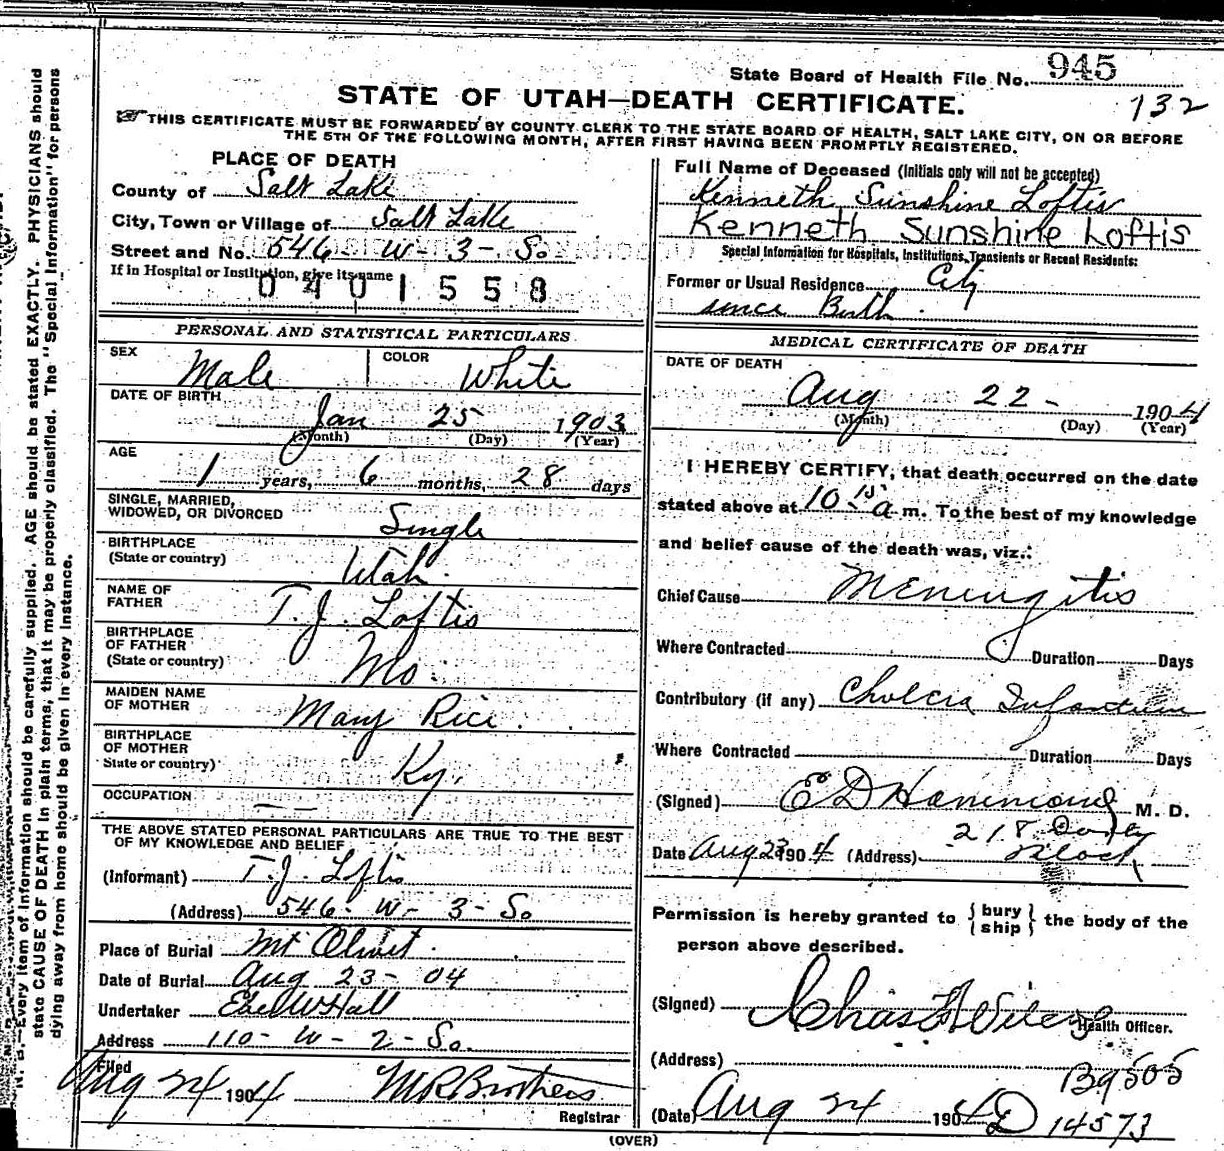 State Board of Health File No. 945
132
STATE OF UTAH—DEATH CERTIFICATE.
THIS CERTIFICATE MUST BE FORWARDED BY COUNTY CLERK TO THE STATE BOARD OF HEALTH, SALT LAKE CITY, ON OR BEFORE
THE 5TH OF THE FOLLOWING MONTH, AFTER FIRST HAVING BEEN PROMPTLY REGISTERED.
PLACE OF DEATH
County of Salt Lake
City, Town or Village of Salt Lake
Street and No. 546 - W - 3 - So
If in Hospital or Institution, give its name
0401558
PERSONAL AND STATISTICAL PARTICULARS
SEX Male COLOR White
DATE OF BIRTH
Jan 25 1903
(Month) (Day) (Year)
AGE
1 years, 6 months, 28 days
SINGLE, MARRIED,
WIDOWED, OR DIVORCED Single
BIRTHPLACE
(State or country) Utah.
NAME OF
FATHER T. J. Loftis
BIRTHPLACE
OF FATHER
(State or country) Mo.
MAIDEN NAME
OF MOTHER Mary Rice.
BIRTHPLACE
OF MOTHER
State or country) Ky.
OCCUPATION — —
THE ABOVE STATED PERSONAL PARTICULARS ARE TRUE TO THE BEST
OF MY KNOWLEDGE AND BELIEF
(Informant) T. J. Loftis
(Address) 546 - W - 3 - So
Place of Burial Mt Olivet.
Date of Burial Aug 23 - 04
Undertaker Eber W Hall
Address 110 - W - 2 - So.
Filed
Aug 24 1904 M R Brothers
Registrar
Full Name of Deceased (Initials only will not be accepted)
Kenneth Sunshine Loftis
Kenneth Sunshine Loftis
Special Information for Hospitals, Institutions, Transients or Recent Residents:
Former or Usual Residence City
since Birth.
MEDICAL CERTIFICATE OF DEATH
DATE OF DEATH
Aug 22 - 1904
(Month) (Day) (Year)
I HEREBY CERTIFY, that death occurred on the date
stated above at 10 - 15 a m. To the best of my knowledge
and belief cause of the death was, viz.:
Chief Cause Meningitis
Where Contracted Duration Days
Contributory (if any) Cholera Infantum
Where Contracted Duration Days
(Signed) E D Hammond M. D.
Date Aug 23 1904 (Address) 218 Dooly
Block
Permission is hereby granted to {bury
ship} the body of the
person above described.
(Signed) Chas F Wilcox
Health Officer.
(Address)
B9505
(Date) Aug 24 1904 D 14573
(OVER)
N. B.—Every item of information should be carefully supplied. AGE should be stated EXACTLY. PHYSICIANS should
state CAUSE OF DEATH in plain terms, that it may be properly classified. The "Special Information" for persons
dying away from home should be given in every instance.